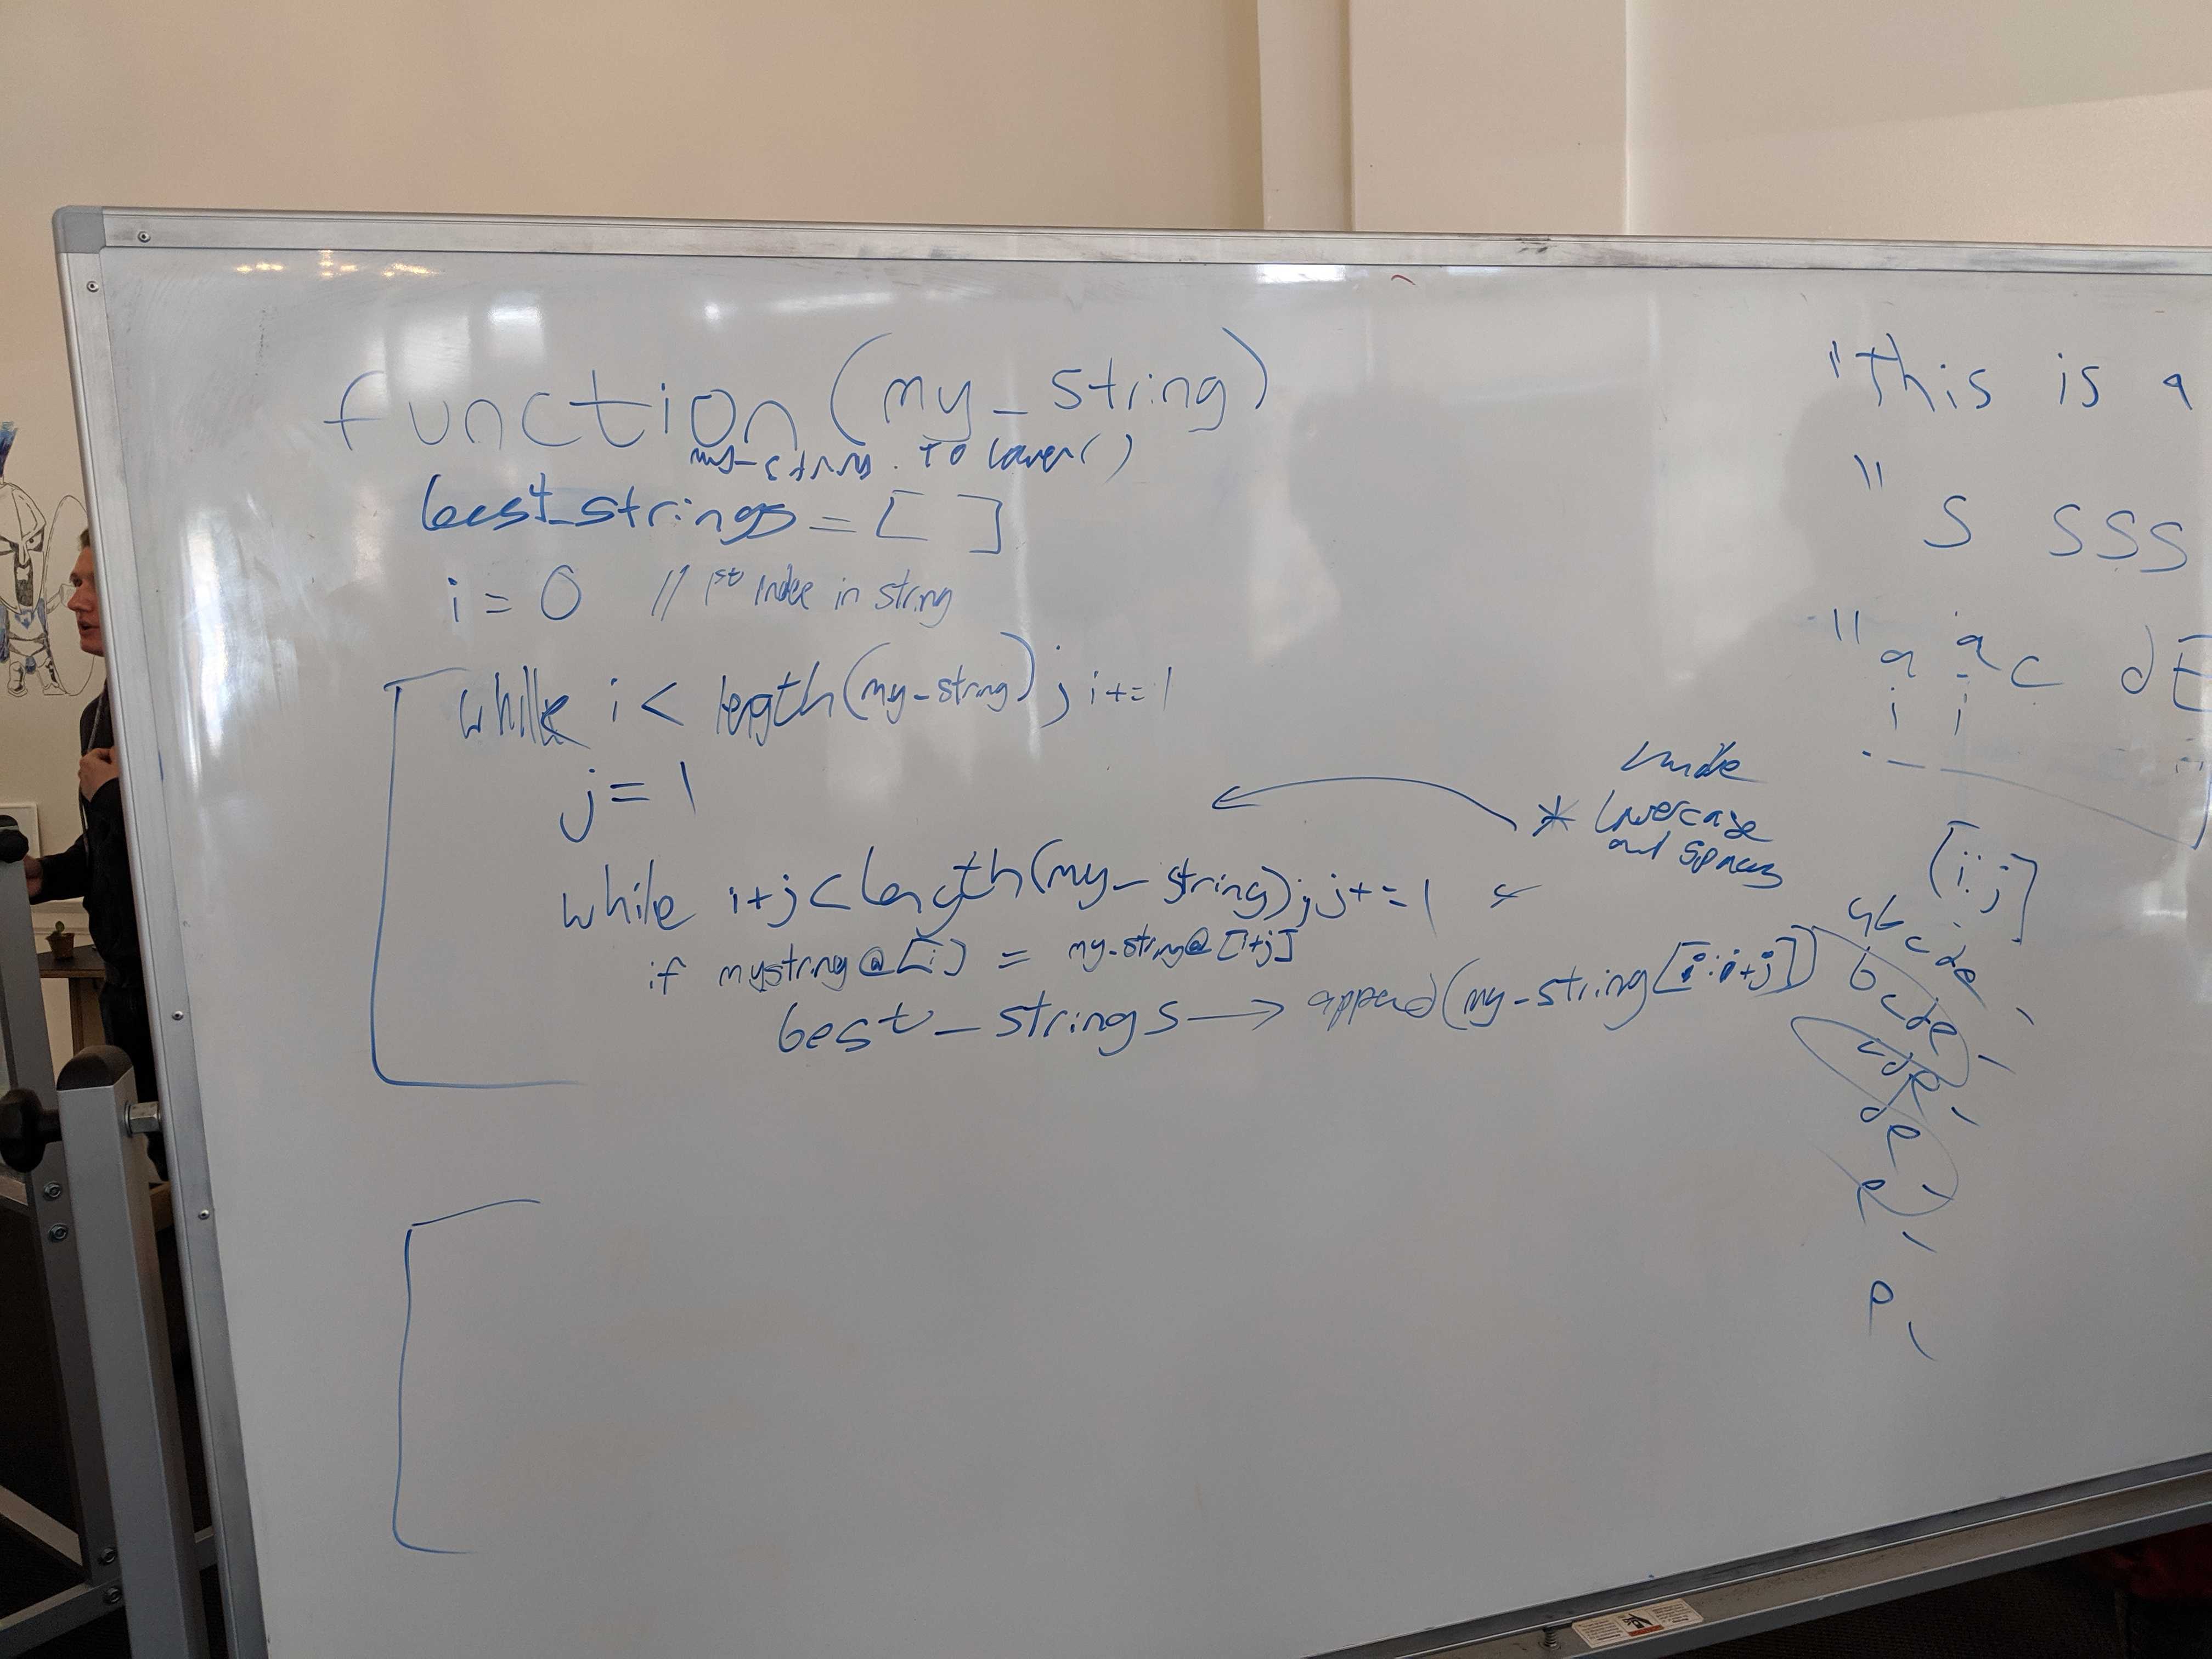 function (my_string)
my_string.toLower()
best_strings = [ ]
i = 0 // 1st index in string
while i < length(my_string); i+=1
j = 1
while i+j < length(my_string); j+=1
if mystring@[i] = my_string@[i+j]
best_strings → append(my_string[i:i+j])
* lowercase
and spaces
"This is a
" S SSS
"a a c dE
i j
[i:j]
abcde
bcde
cde
de
e